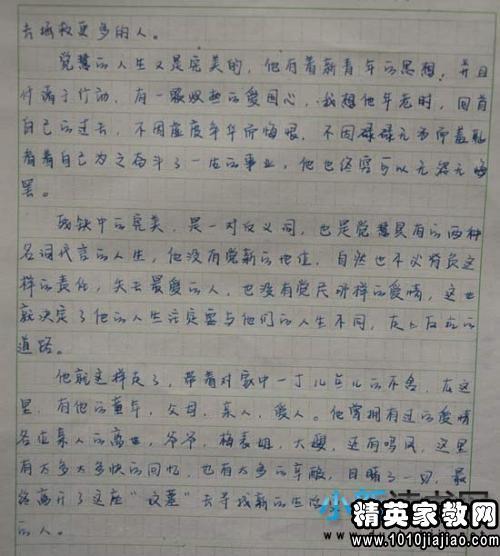 去拯救更多的人。
觉慧的人生又是完美的，他有着新青年的思想，并且
付诸于行动，有一颗炽热的爱国心，我想他年老时，回首
自己的过去，不因虚度年华而悔恨，不因碌碌无为而羞耻
看着自己为之奋斗了一生的事业，他也终究可以无怨无悔
罢。
残缺中的完美，是一对反义词，也是觉慧具有的两种
名词代言的人生，他没有觉新的地位，自然也不必背负这
样的责任，失去最爱的人，也没有觉民那样的爱情，这也
就决定了他的人生注定要与他们的人生不同，走上反抗的
道路。
他就这样走了，带着对家中一丁儿点儿的不舍，在这
里，有他的童年，父母，亲人，爱人。他曾拥有过的爱情
各位亲人的离世，爷爷，梅表姐，大嫂，还有鸣凤，这里
有太多太多快的回忆，也有太多的辛酸，目睹了一切，最
终离开了这座“坟墓”去寻找新的生活
的人。
精英家教网
www.1010jiajiao.com